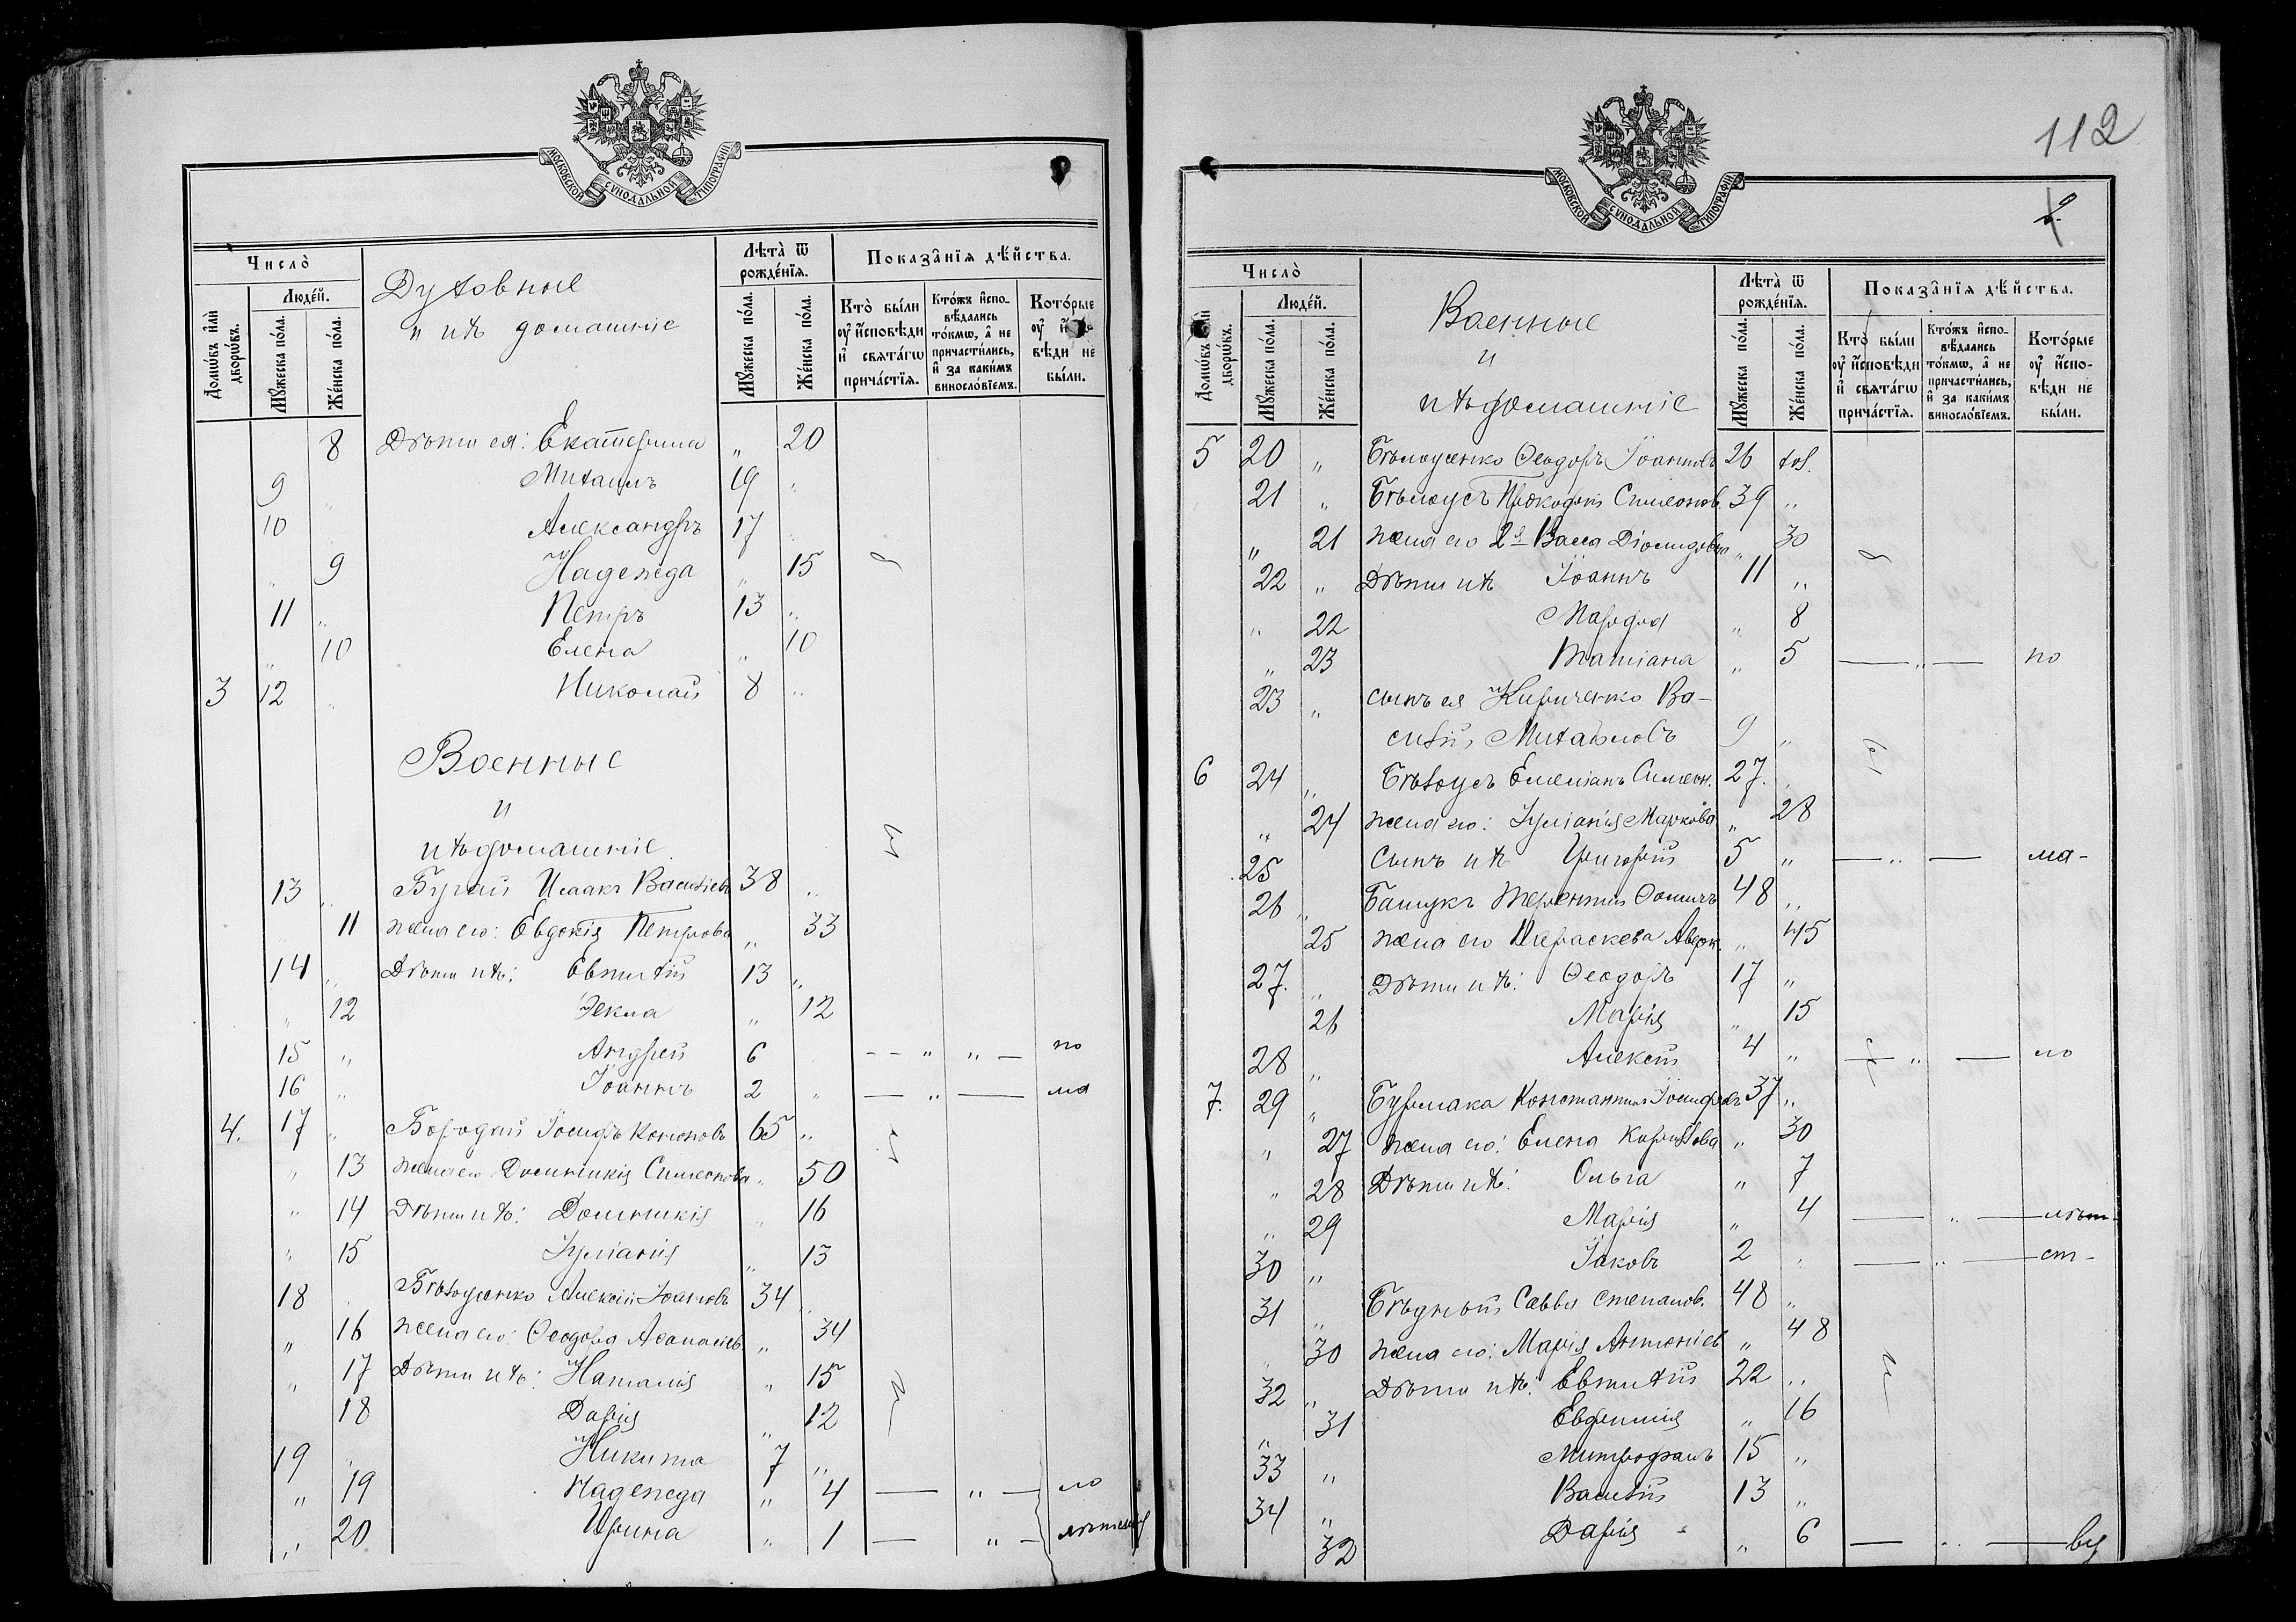 МОСКОВСКОЙ СУНОДАЛЬНОЙ ТИПОГРАФІИ
Число̀
Домѡвъ илѝ дворѡвъ.
Людей.
Мꙋжеска по́ла.
Же́нска по́ла.
Духовные
и ихъ домашніе
Лѣта̀ ѿ рожде́нїѧ.
Мꙋжеска по́ла.
Же́нска по́ла.
Показа̑нїѧ дѣ́йства.
Кто̀ бы́ли оу҆ и҆сповѣди и҆ свѧта́гѡ прича́стїѧ.
Кто́жъ и҆сповѣ́дались то́кмѡ, а҆ не причасти́лись, и҆ за каки́мъ винослові́емъ.
Кото́рые оу҆ и҆сповѣди не бы́ли.
8 Дѣти ея: Екатерина „ 20
9 „ Михаилъ 19 „
10 Александръ 17 „
„ 9 Надежда „ 15
11 „ Петръ 13 „
„ 10 Елена „ 10
3 12 „ Николай 8 „
Военные
и
ихъ домашніе
13 „ Бугай Исаакъ Васильевъ 38 „
11 жена его: Евдокія Петрова „ 33
14 „ Дѣти ихъ: Евтихій 13 „
„ 12 Текла „ 12
15 „ Андрей 6 — „ „ — по
16 „ Іоаннъ 2 „ — „ — ма
4. 17 „ Бородай Іосифъ Кононовъ 65 „
„ 13 жена его Домникія Симеонова „ 50
„ 14 Дѣти ихъ: Домникія „ 16
„ 15 Іуліанія „ 13
18 Бѣлоусенко Алексій Іоанновъ 34 „
„ 16 жена его: Ѳеодора Аѳанасіев. „ 34
„ 17 Дѣти ихъ: Наталія „ 15
18 Дарія „ 12
19 „ Никита 7 „
„ 19 Надежда „ 4 — „ — ло
„ 20 Ирина „ 1 — „ —
112
МОСКОВСКОЙ СУНОДАЛЬНОЙ ТИПОГРАФІИ
Число̀
Домѡвъ илѝ дворѡвъ.
Людей.
Мꙋжеска по́ла.
Же́нска по́ла.
Военные
и
ихъ домашніе
Лѣта̀ ѿ рожде́нїѧ.
Мꙋжеска по́ла.
Же́нска по́ла.
Показа̑нїѧ дѣ́йства.
Кто̀ бы́ли оу҆ и҆сповѣди и҆ свѧта́гѡ прича́стїѧ.
Кто́жъ и҆сповѣ́дались то́кмѡ, а҆ не причасти́лись, и҆ за каки́мъ винослові́емъ.
Кото́рые оу҆ и҆спо-вѣди не бы́ли.
5 20 „ Бѣлоусенко Ѳеодоръ Іоанновъ 26 хол.
21 „ Бѣлоусъ Прокофій Симеонов. 39 „
„ 21 жена его 2я Васса Діомидова „ 30
22 „ Дѣти ихъ Іоаннъ 11 „
„ 22 Марфа „ 8
„ 23 Татіана „ 5 — „ — по
23 „ сынъ ея Кириченко Ва-
силій Михайловъ 9 „
6 24 „ Бѣлоусъ Емеліанъ Симеон. 27 „
„ 24 жена его: Іуліанія Маркова „ 28
25 Сынъ ихъ Григорій 5 „ — „ — ма-
26 „ Башукъ Терентій Ѳомичъ 48 „
25 жена его Параскева Аверк. „ 45
27. „ Дѣти ихъ: Ѳеодоръ 17 „
26 Марія „ 15
28 „ Алексій 4 „ — „ — ло
7. 29 „ Бурлака Константинъ Іосифовъ 37 „
„ 27 жена его: Елена Кирилова „ 30
„ 28 Дѣти ихъ: Ольга „ 7
„ 29 Марія „ 4 — „ — лѣт-
30 „ Іаковъ 2 „ — „ — ст-
31 „ Бѣдный Савва Степанов. 48 „
„ 30 жена его: Марія Антоніев „ 48
32 „ Дѣти ихъ: Евтихій 22 „
„ 31 Евфимія „ 16
33 „ Митрофанъ 15 „
34 „ Василій 13 „
32 Дарія „ 6 — „ — ву